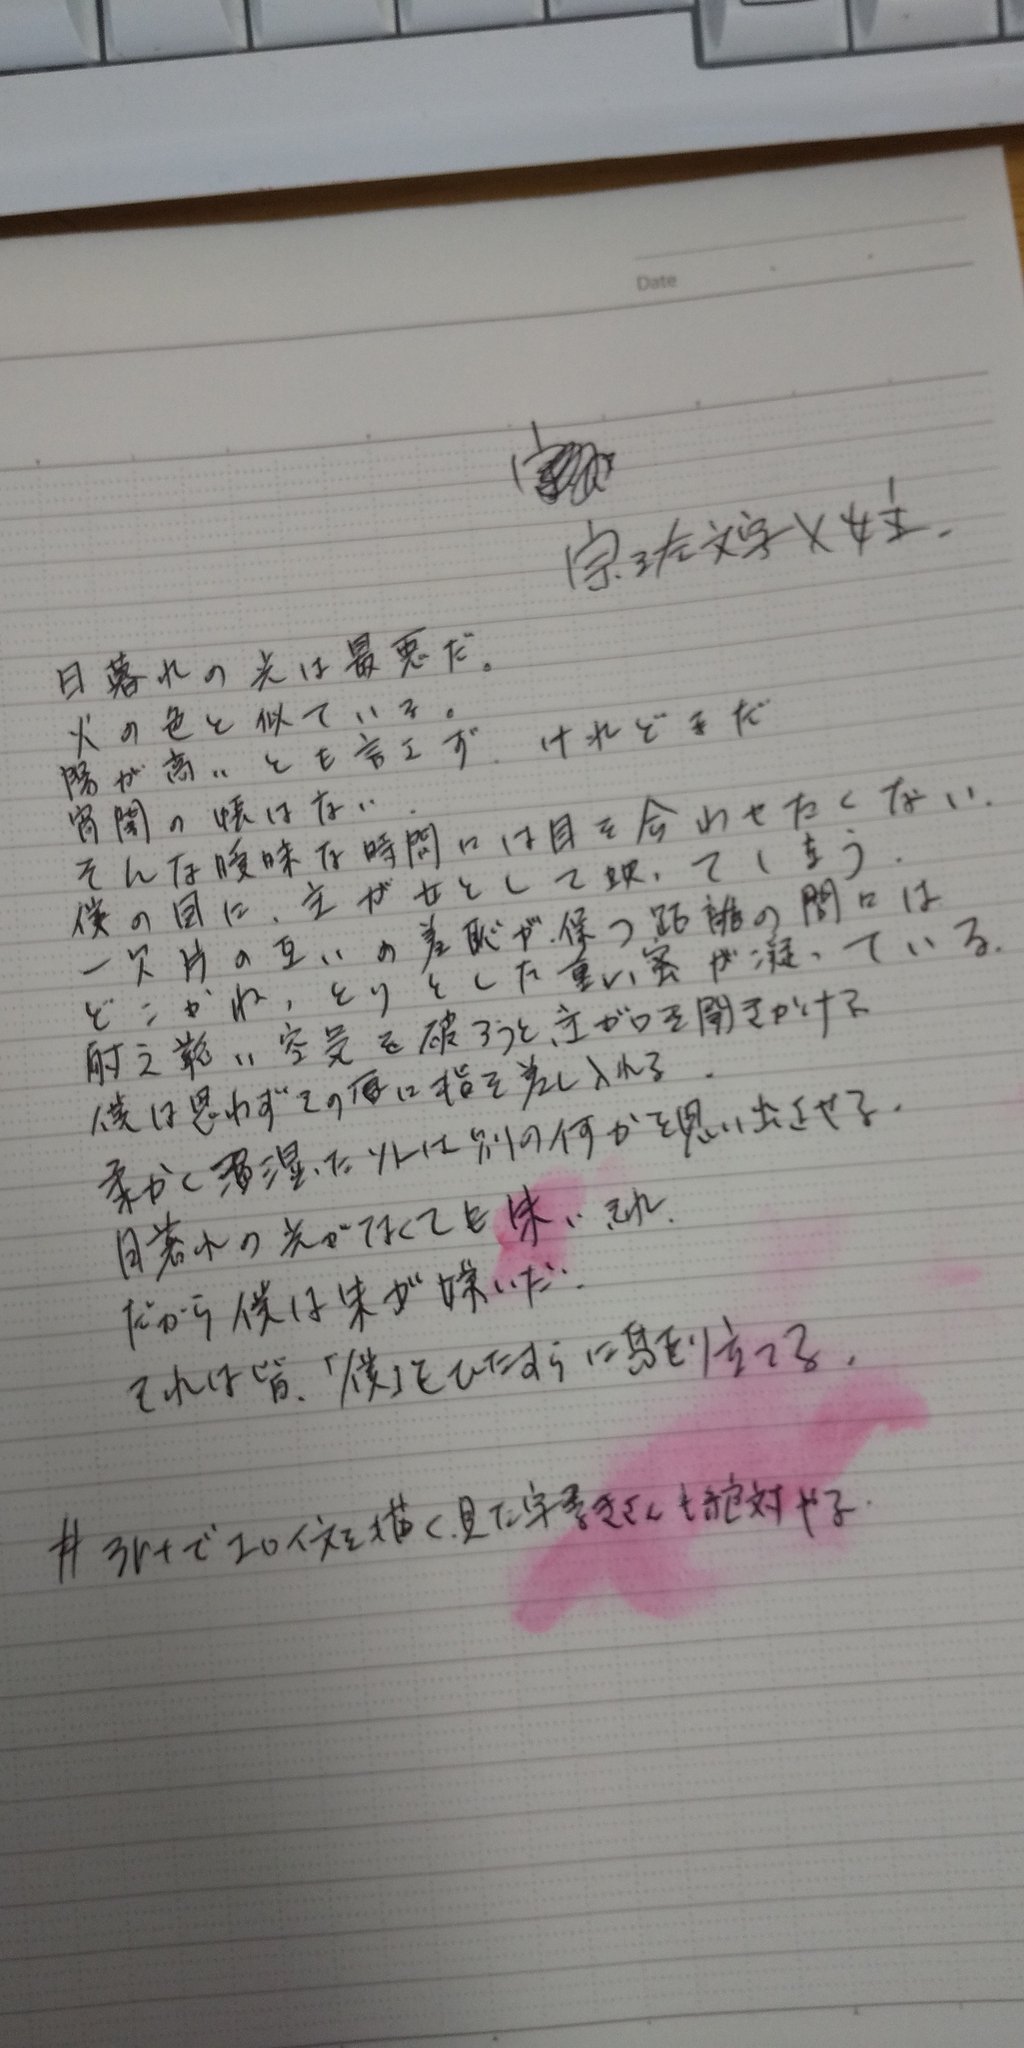 Date
宗三左文字×女主.
日暮れの光は最悪だ。
火の色と似ている。
陽が高いとも言えず、けれどまだ
宵闇の帳はない.
そんな曖昧な時間には目を合わせたくない.
僕の目に、主が女として映ってしまう.
一欠片の互いの羞恥が保つ距離の間には
どこかねっとりとした重い蜜が凝っている.
耐え難い空気を破ろうと、主が口を開きかける
僕は思わずその唇に指を差し入れる.
柔かく湿った外は別の何かを思い出させる.
日暮れの光がなくても朱い、それ.
だから僕は朱が嫌いだ.
それは皆、「僕」をひたすらに急き立てる.
# 3行で20行を描く見た字書きさんも絶対やる.